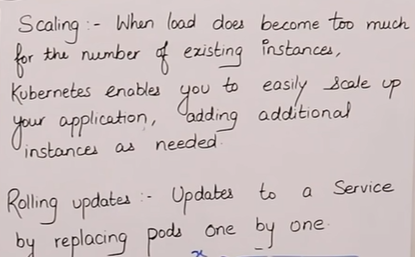 Scaling :- When load does become too much
for the number of existing instances,
Kubernetes enables you to easily scale up
your application, adding additional
instances as needed.
Rolling updates :- Updates to a Service
by replacing pods one by one.